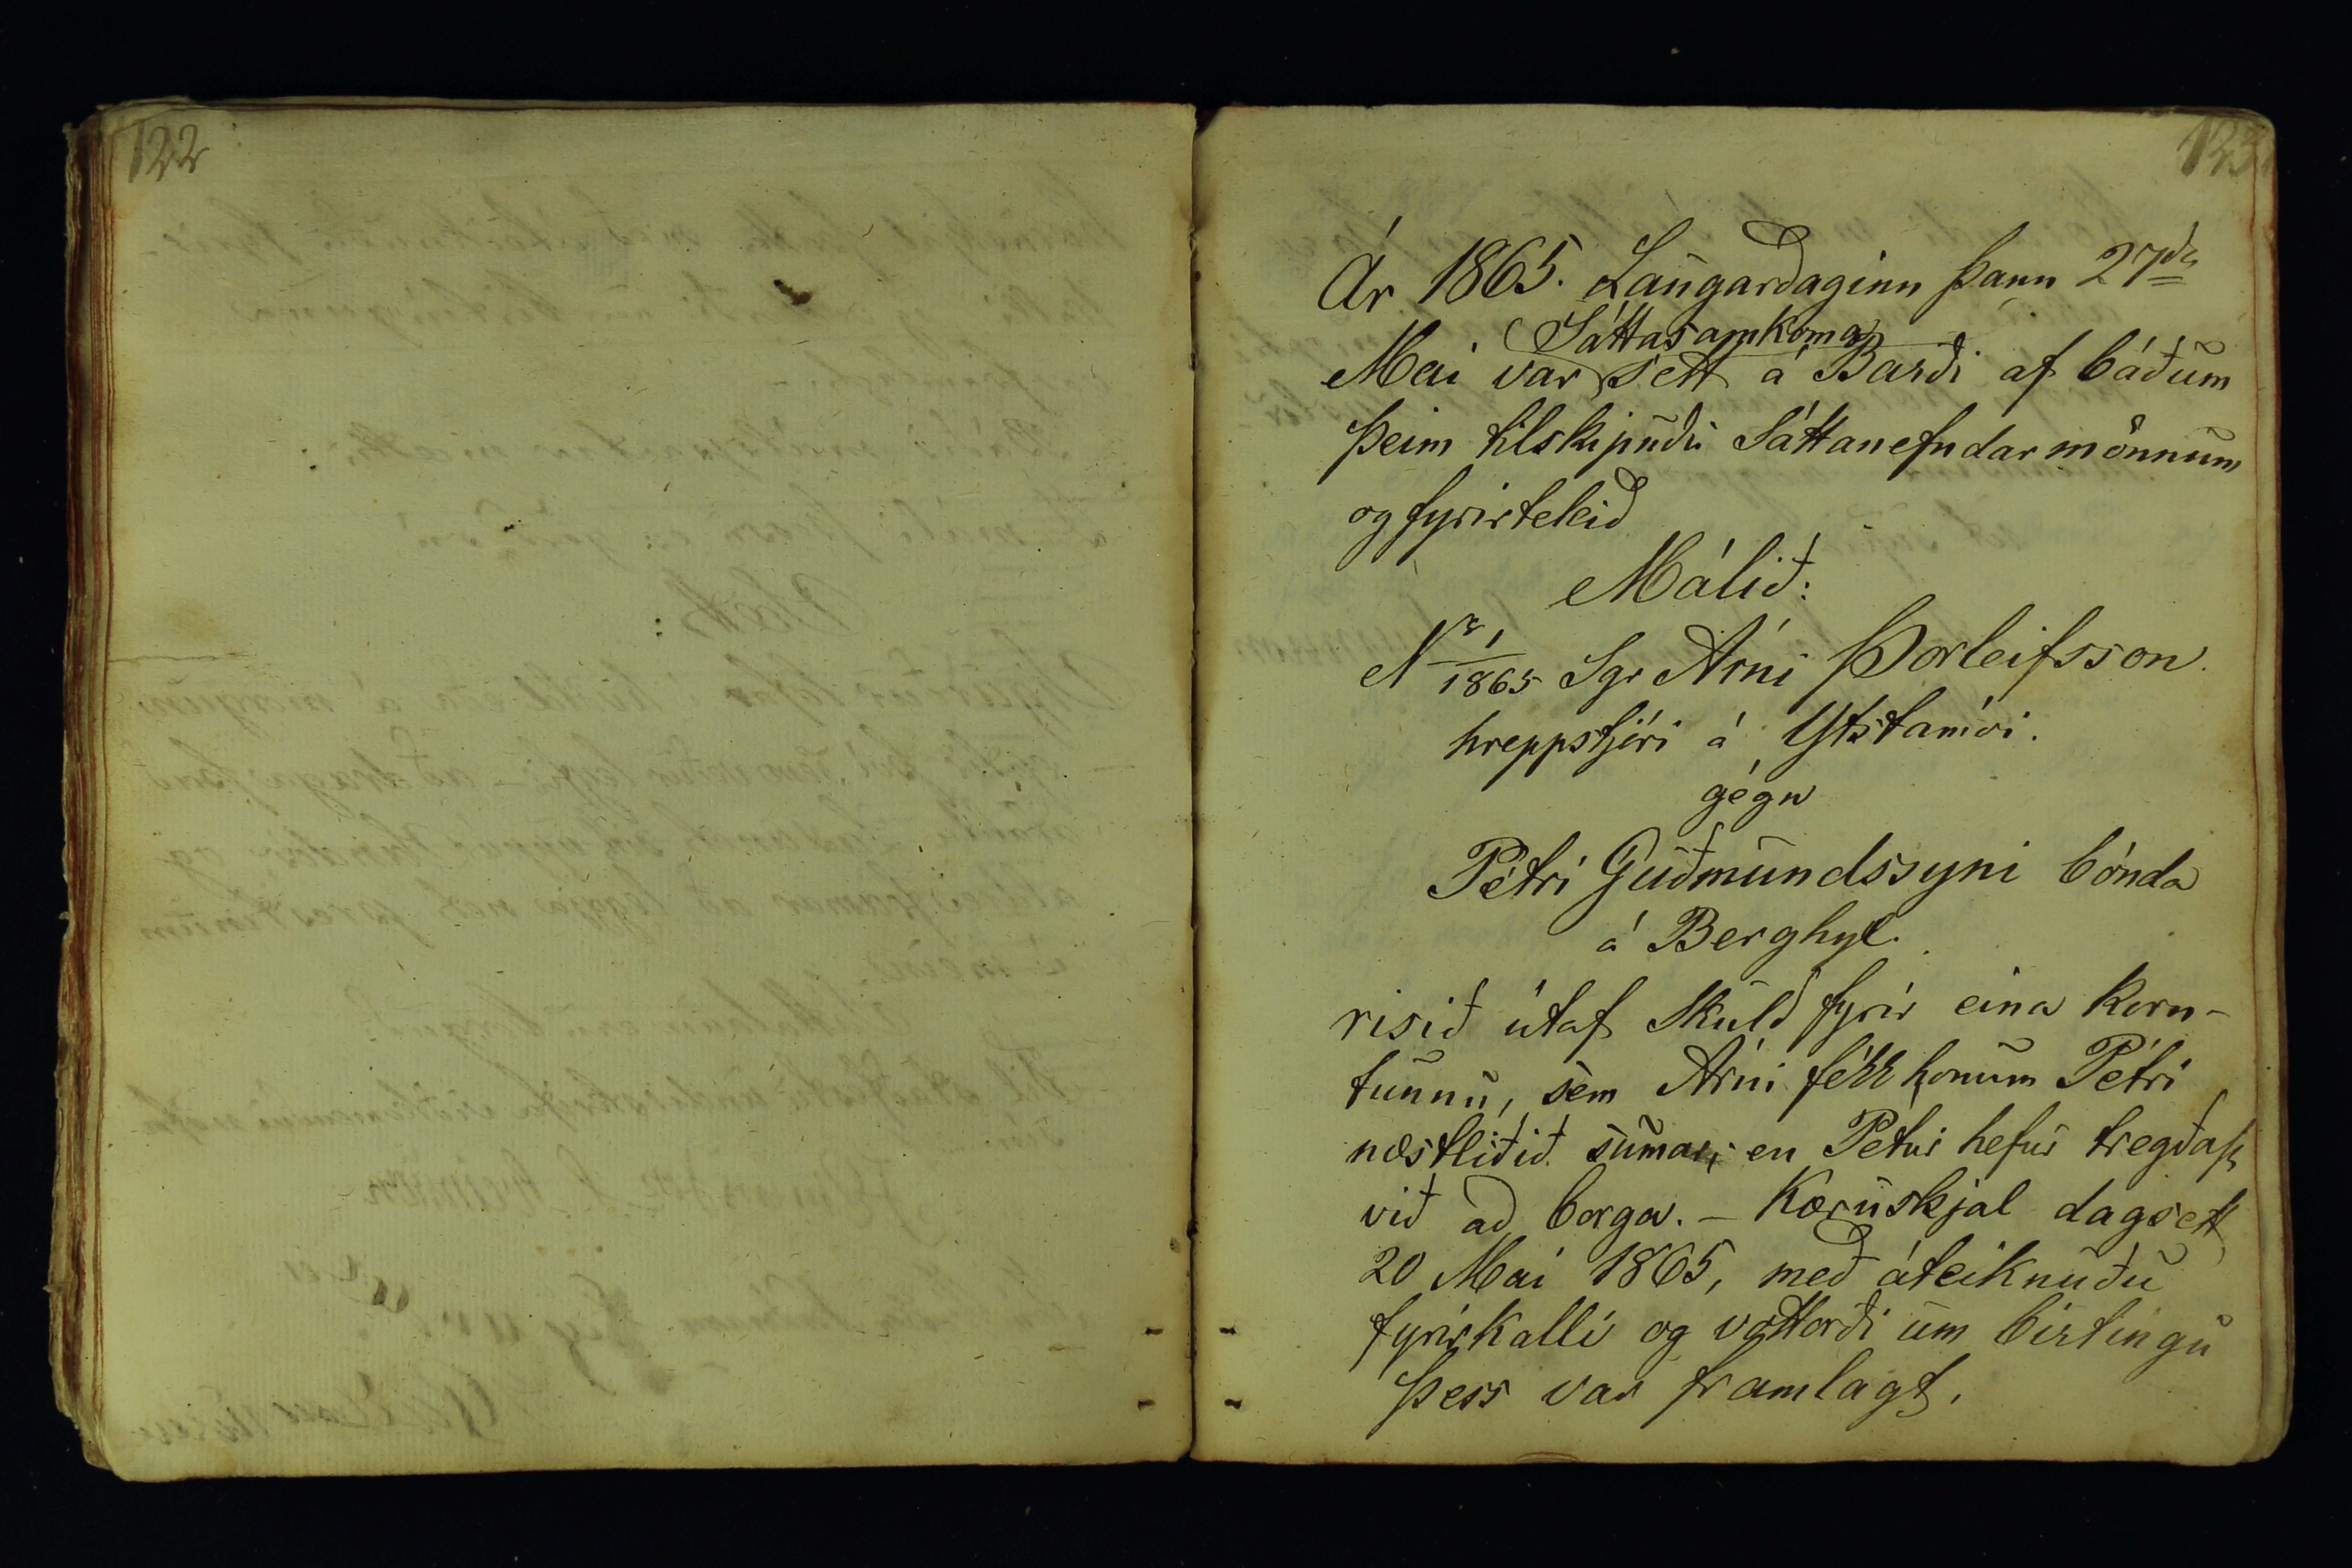 122
123
Ár 1865. Laugardaginn þann 27da
Sáttasamkoma
Mai var sett á Barði af báðum
þeim tilskipuðu Sáttanefndarmönnum
og fyrirtekið
Málið:
Nr 1/1865 Sgr Árni Þorleifsson
hreppstjóri á Ytstamói.
gégn
Pétri Guðmundssyni bónda
á Berghyl.
risið útaf Skuld fyrir eina korn-
tunnu, sem Árni fékk honum Pétri
næstliðið sumar, en Petur hefur tregðast
við að borga. – Kæruskjal dagsett
20 Mai 1865, með áteiknuðu
fyrirkalli og vottorði um birtingu
þess var framlagt.